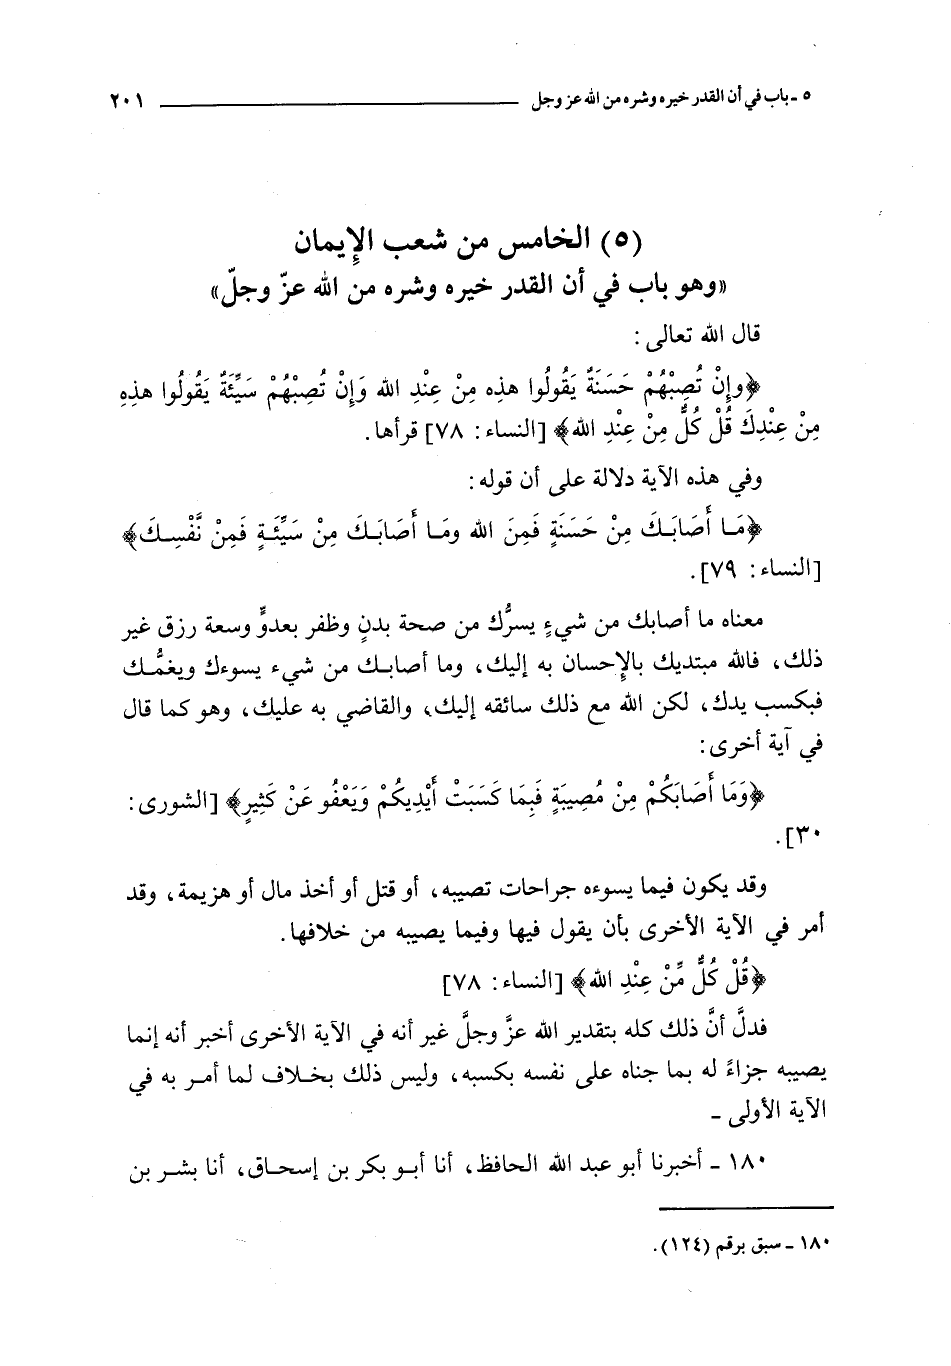 ٥ ـ باب في أن القدر خيره وشره من الله عز وجل ٢٠١
(٥) الخامس من شعب الإيمان
«وهو باب في أن القدر خيره وشره من الله عزّ وجلّ»
قال الله تعالى:
﴿وإنْ تُصِبْهُمْ حَسَنَةٌ يَقُولُوا هذِه مِنْ عِنْدِ الله وَإِنْ تُصِبْهُمْ سَيِّئَةٌ يَقُولُوا هذِهِ
مِنْ عِنْدِكَ قُلْ كُلٌّ مِنْ عِنْدِ الله﴾ [النساء: ٧٨] قرأها.
وفي هذه الآية دلالة على أن قوله:
﴿مَا أَصَابَكَ مِنْ حَسَنَةٍ فَمِنَ الله ومَا أَصَابَكَ مِنْ سَيِّئَةٍ فَمِنْ نَّفْسِكَ﴾
[النساء: ٧٩].
معناه ما أصابك من شيءٍ يسرُّك من صحة بدنٍ وظفر بعدوٍّ وسعة رزق غير
ذلك، فالله مبتديك بالإحسان به إليك، وما أصابك من شيء يسوءك ويغمُّك
فبكسب يدك، لكن الله مع ذلك سائقه إليك، والقاضي به عليك، وهو كما قال
في آية أخرى:
﴿وَمَا أَصَابَكُمْ مِنْ مُصِيبَةٍ فَبِمَا كَسَبَتْ أَيْدِيكُمْ وَيَعْفُو عَنْ كَثِيرٍ﴾ [الشورى:
٣٠].
وقد يكون فيما يسوءه جراحات تصيبه، أو قتل أو أخذ مال أو هزيمة، وقد
أمر في الآية الأخرى بأن يقول فيها وفيما يصيبه من خلافها.
﴿قُلْ كُلٌّ مِّنْ عِنْدِ الله﴾ [النساء: ٧٨]
فدلَّ أنَّ ذلك كله بتقدير الله عزَّ وجلَّ غير أنه في الآية الأخرى أخبر أنه إنما
يصيبه جزاءً له بما جناه على نفسه بكسبه، وليس ذلك بخلاف لما أمر به في
الآية الأولى ـ
١٨٠ ـ أخبرنا أبو عبد الله الحافظ، أنا أبو بكر بن إسحاق، أنا بشر بن
١٨٠ ـ سبق برقم (١٢٤).